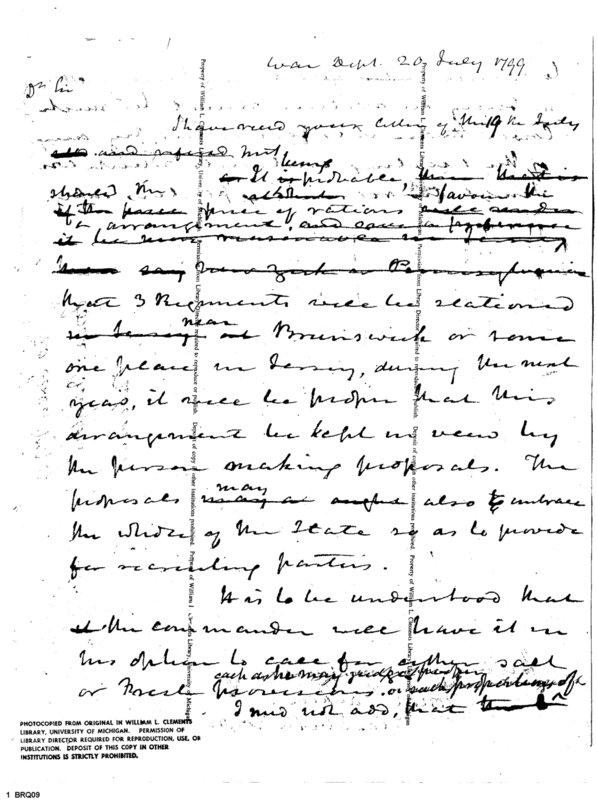 War Dept. 20 July 1799
Dr Sir
I have recd your letter of the 19th July
and refered
It is probable,
should the favour the
price of rations
arrangement, and
it be more reasonable in Jersey
than say New York or Pennsylvania
that 3 Regiments will be stationed
in Jersey near at Brunswick or some
one place in Jersey, during the next
year, it will be proper that this
arrangement be kept in view by
the person making proposals. The
proposals may also to embrace
the whole of the State so as to provide
for recruiting parties.
It is to be understood that
the commander will have it in
his option to call for either salt
or Fresh provisions. or such proportions of
each as he may judge proper
I need not add, that
Property of William L. Clements Library, University of Michigan
PHOTOCOPIED FROM ORIGINAL IN WILLIAM L. CLEMENTS
LIBRARY, UNIVERSITY OF MICHIGAN. PERMISSION OF
LIBRARY DIRECTOR REQUIRED FOR REPRODUCTION, USE, OR
PUBLICATION. DEPOSIT OF THIS COPY IN OTHER
INSTITUTIONS IS STRICTLY PROHIBITED.
1 BRQ09